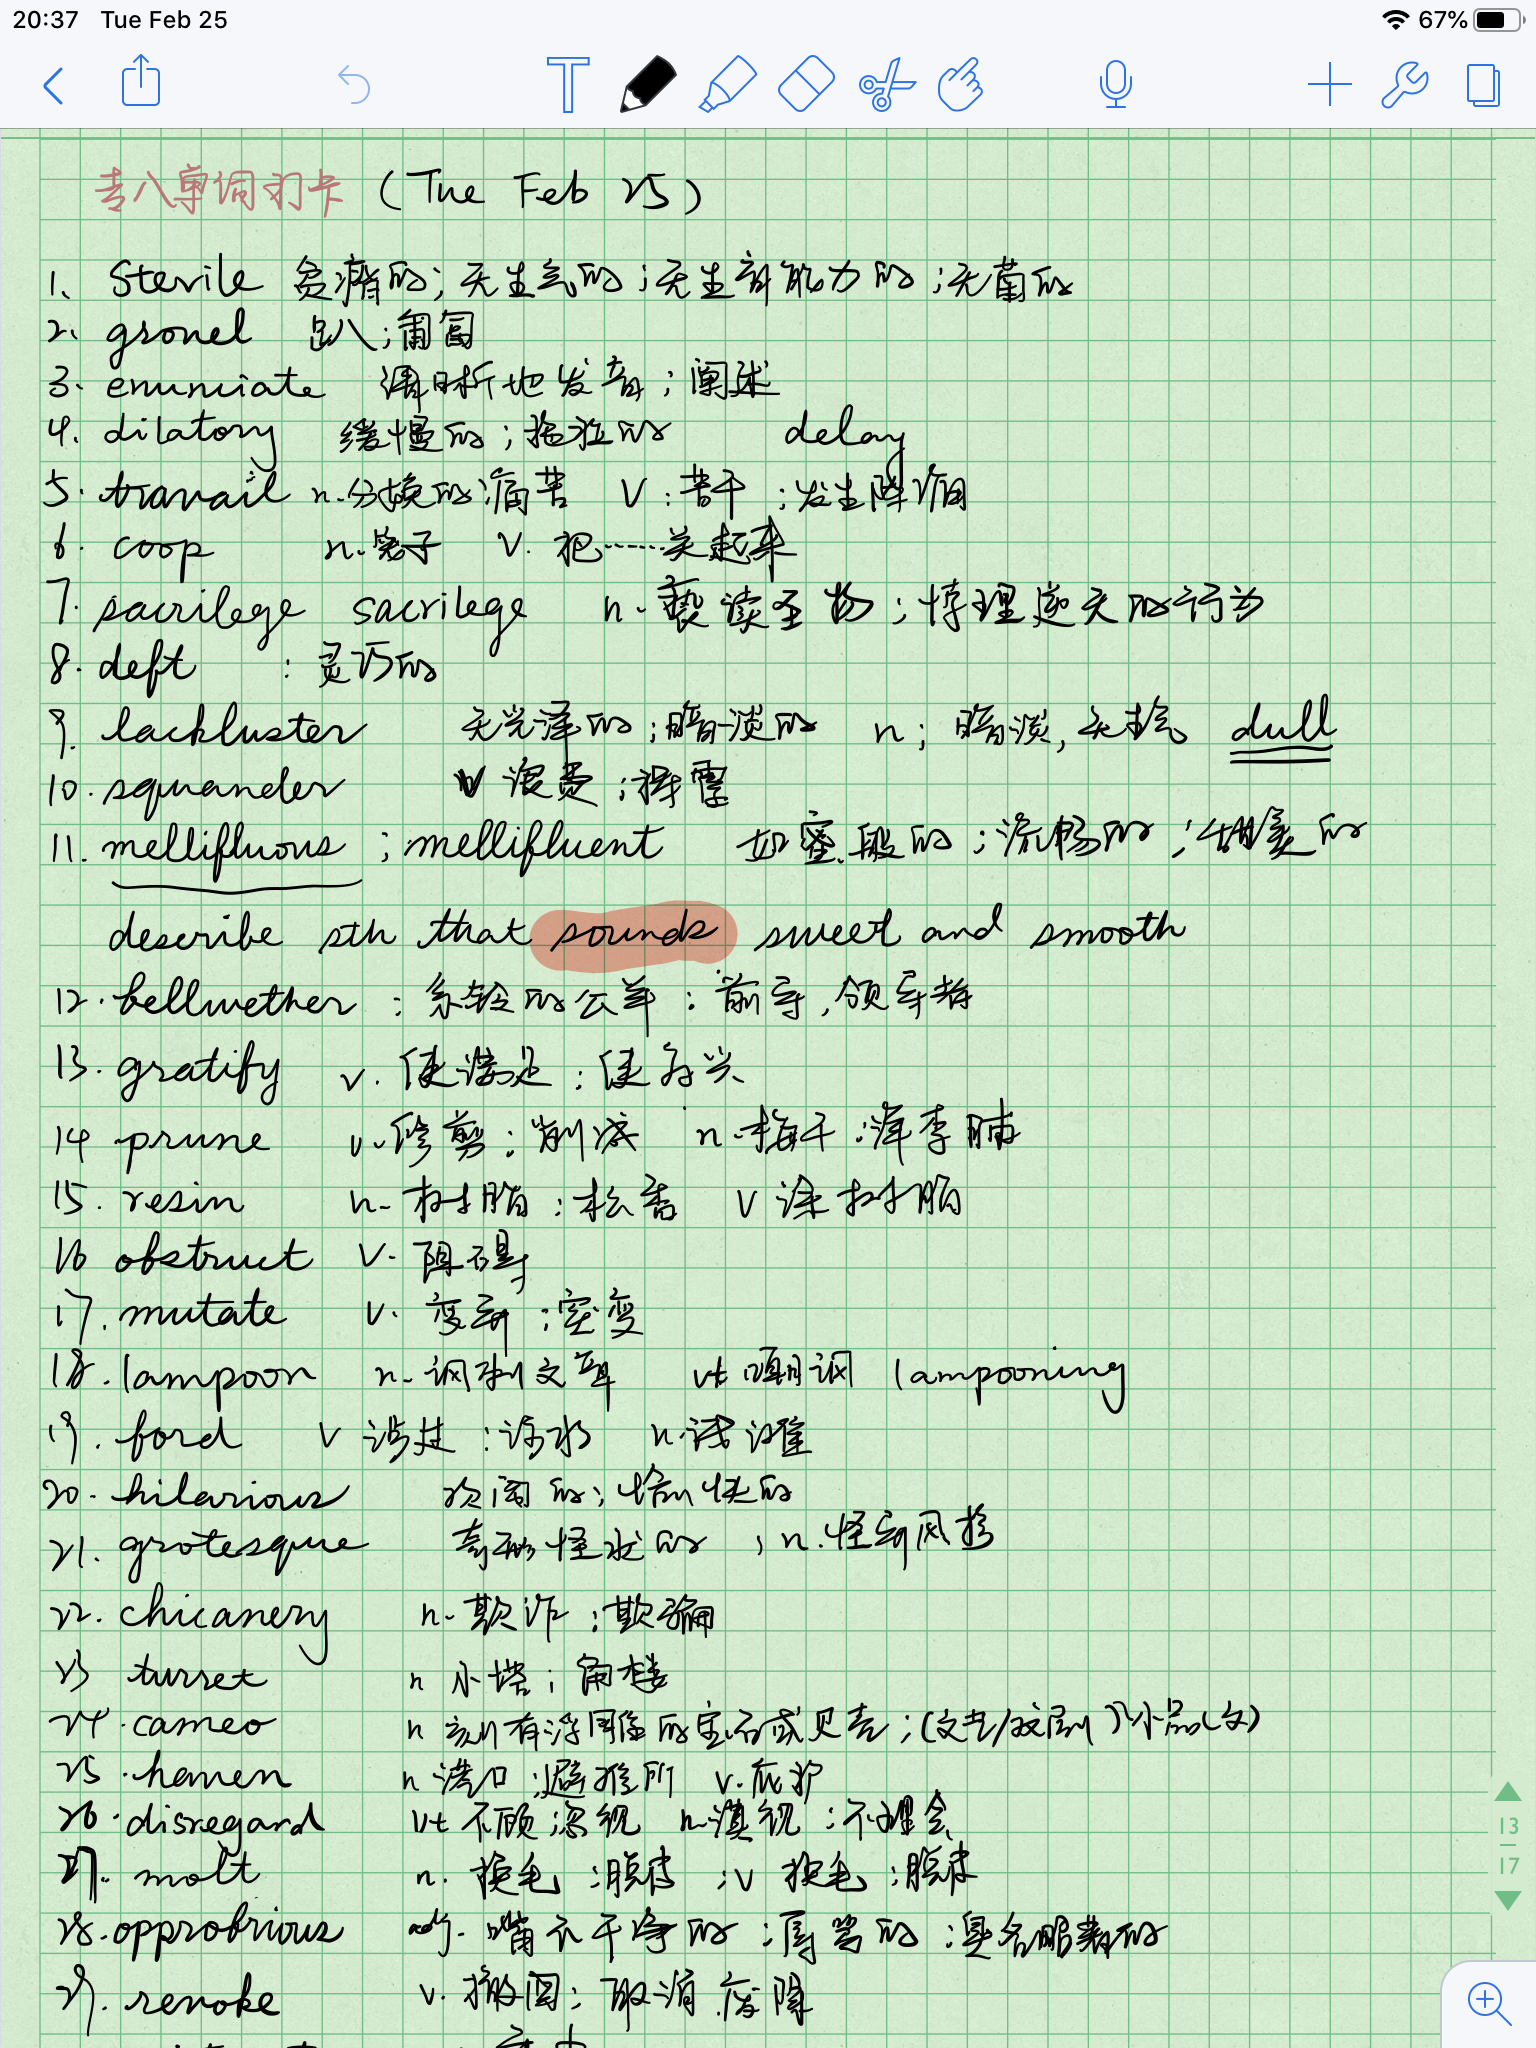 20:37 Tue Feb 25 67%
专八单词打卡 (Tue Feb 25)
1、 Sterile 贫瘠的；无生气的；无生育能力的；无菌的
2、 grovel 趴；匍匐
3. enunciate 清晰地发音；阐述
4. dilatory 缓慢的；拖拉的 delay
5. travail n. 分娩的痛苦 V：苦干；发生阵痛
6. coop n. 笼子 V. 把……关起来
7. sacrilege sacrilege n. 亵渎圣物；悖理逆天的行为
8. deft ：灵巧的
9. lackluster 无光泽的；暗淡的 n；暗淡，无光 dull
10. squander V 浪费；挥霍
11. mellifluous ；mellifluent 如蜜般的；流畅的；甜美的
describe sth that sounds sweet and smooth
12. bellwether ：系铃的公羊：前导，领导者
13. gratify v. 使满足：使高兴
14 prune v. 修剪：削减 n. 梅干：洋李脯
15. resin n. 树脂：松香 V 涂树脂
16 obstruct V. 阻碍
17. mutate V. 变异；突变
18. lampoon n. 讽刺文章 vt 嘲讽 lampooning
19. ford V 涉过：涉水 n. 浅滩
20. hilarious 欢闹的；愉快的
21. grotesque 奇形怪状的 ；n. 怪异风格
22. chicanery n. 欺诈；欺骗
23 turret n 小塔；角楼
24. cameo n 刻有浮雕的宝石或贝壳；(文艺/戏剧)小品(文)
25. haven n 港口；避难所 v. 庇护
26. disregard vt 不顾；忽视 n. 漠视；不理会
27. molt n. 换毛；脱皮 ；V 换毛；脱皮
28. opprobrious adj. 嘴不干净的；辱骂的；臭名昭著的
29. revoke v. 撤回；取消 废除
13
17